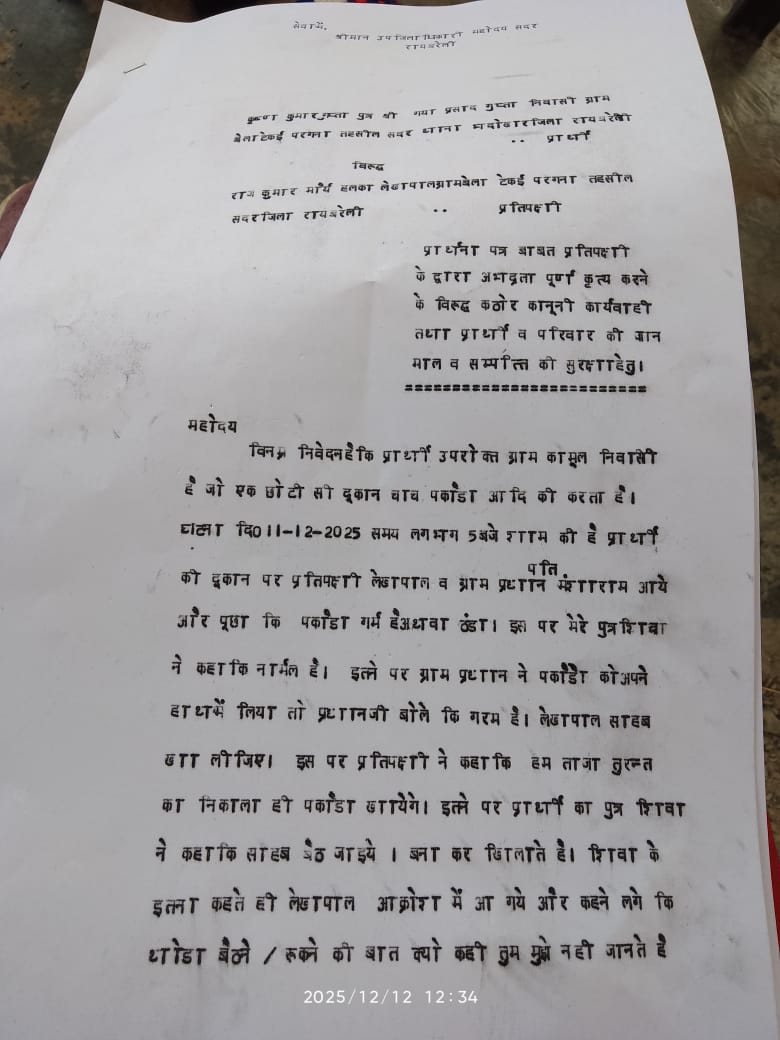 सेवामें,
श्रीमान उपजिलाधिकारी महोदय सदर
रायबरेली
कृष्ण कुमार गुप्ता पुत्र श्री गया प्रसाद गुप्ता निवासी ग्राम
बेलाटेकई परगना तहसील सदर थाना भदोखरजिला रायबरेली
.. प्रार्थी
विरुद्ध
राज कुमार मौर्य हलका लेखपालग्रामबेला टेकई परगना तहसील
सदरजिला रायबरेली .. प्रतिपक्षी
प्रार्थना पत्र बाबत प्रतिपक्षी
के द्वारा अभद्रता पूर्ण कृत्य करने
के विरूद्ध कठोर कानूनी कार्यवाही
तथा प्रार्थी व परिवार की जान
माल व सम्पत्ति की सुरक्षाहेतु।
========================
महोदय
विनम्र निवेदनहैकि प्रार्थी उपरोक्त ग्राम कामूल निवासी
है जो एक छोटी सी दूकान चाय पकौडा आदि की करता है।
घटना दि011-12-2025 समय लगभग 5बजे शाम की है प्रार्थी
पति
की दूकान पर प्रतिपक्षी लेखपाल व ग्राम प्रधान मंशाराम आये
और पूछा कि पकौडा गर्म हैअथवा ठंडा। इस पर मेरे पुत्रशिवा
ने कहाकि नार्मल है। इतने पर ग्राम प्रधान ने पकौडे कोअपने
हाथमें लिया तो प्रधानजी बोले कि गरम है। लेखपाल साहब
खा लीजिए। इस पर प्रतिपक्षी ने कहाकि हम ताजा तुरन्त
का निकाला ही पकौडा खायेगे। इतने पर प्रार्थी का पुत्र शिवा
ने कहाकि साहब बैठ जाइये । बना कर खिलाते है। शिवा के
इतना कहते ही लेखपाल आक्रोश में आ गये और कहने लगे कि
थोडा बैठने / रूकने की बात क्यो कही तुम मुझे नही जानते है
2025/12/12 12:34